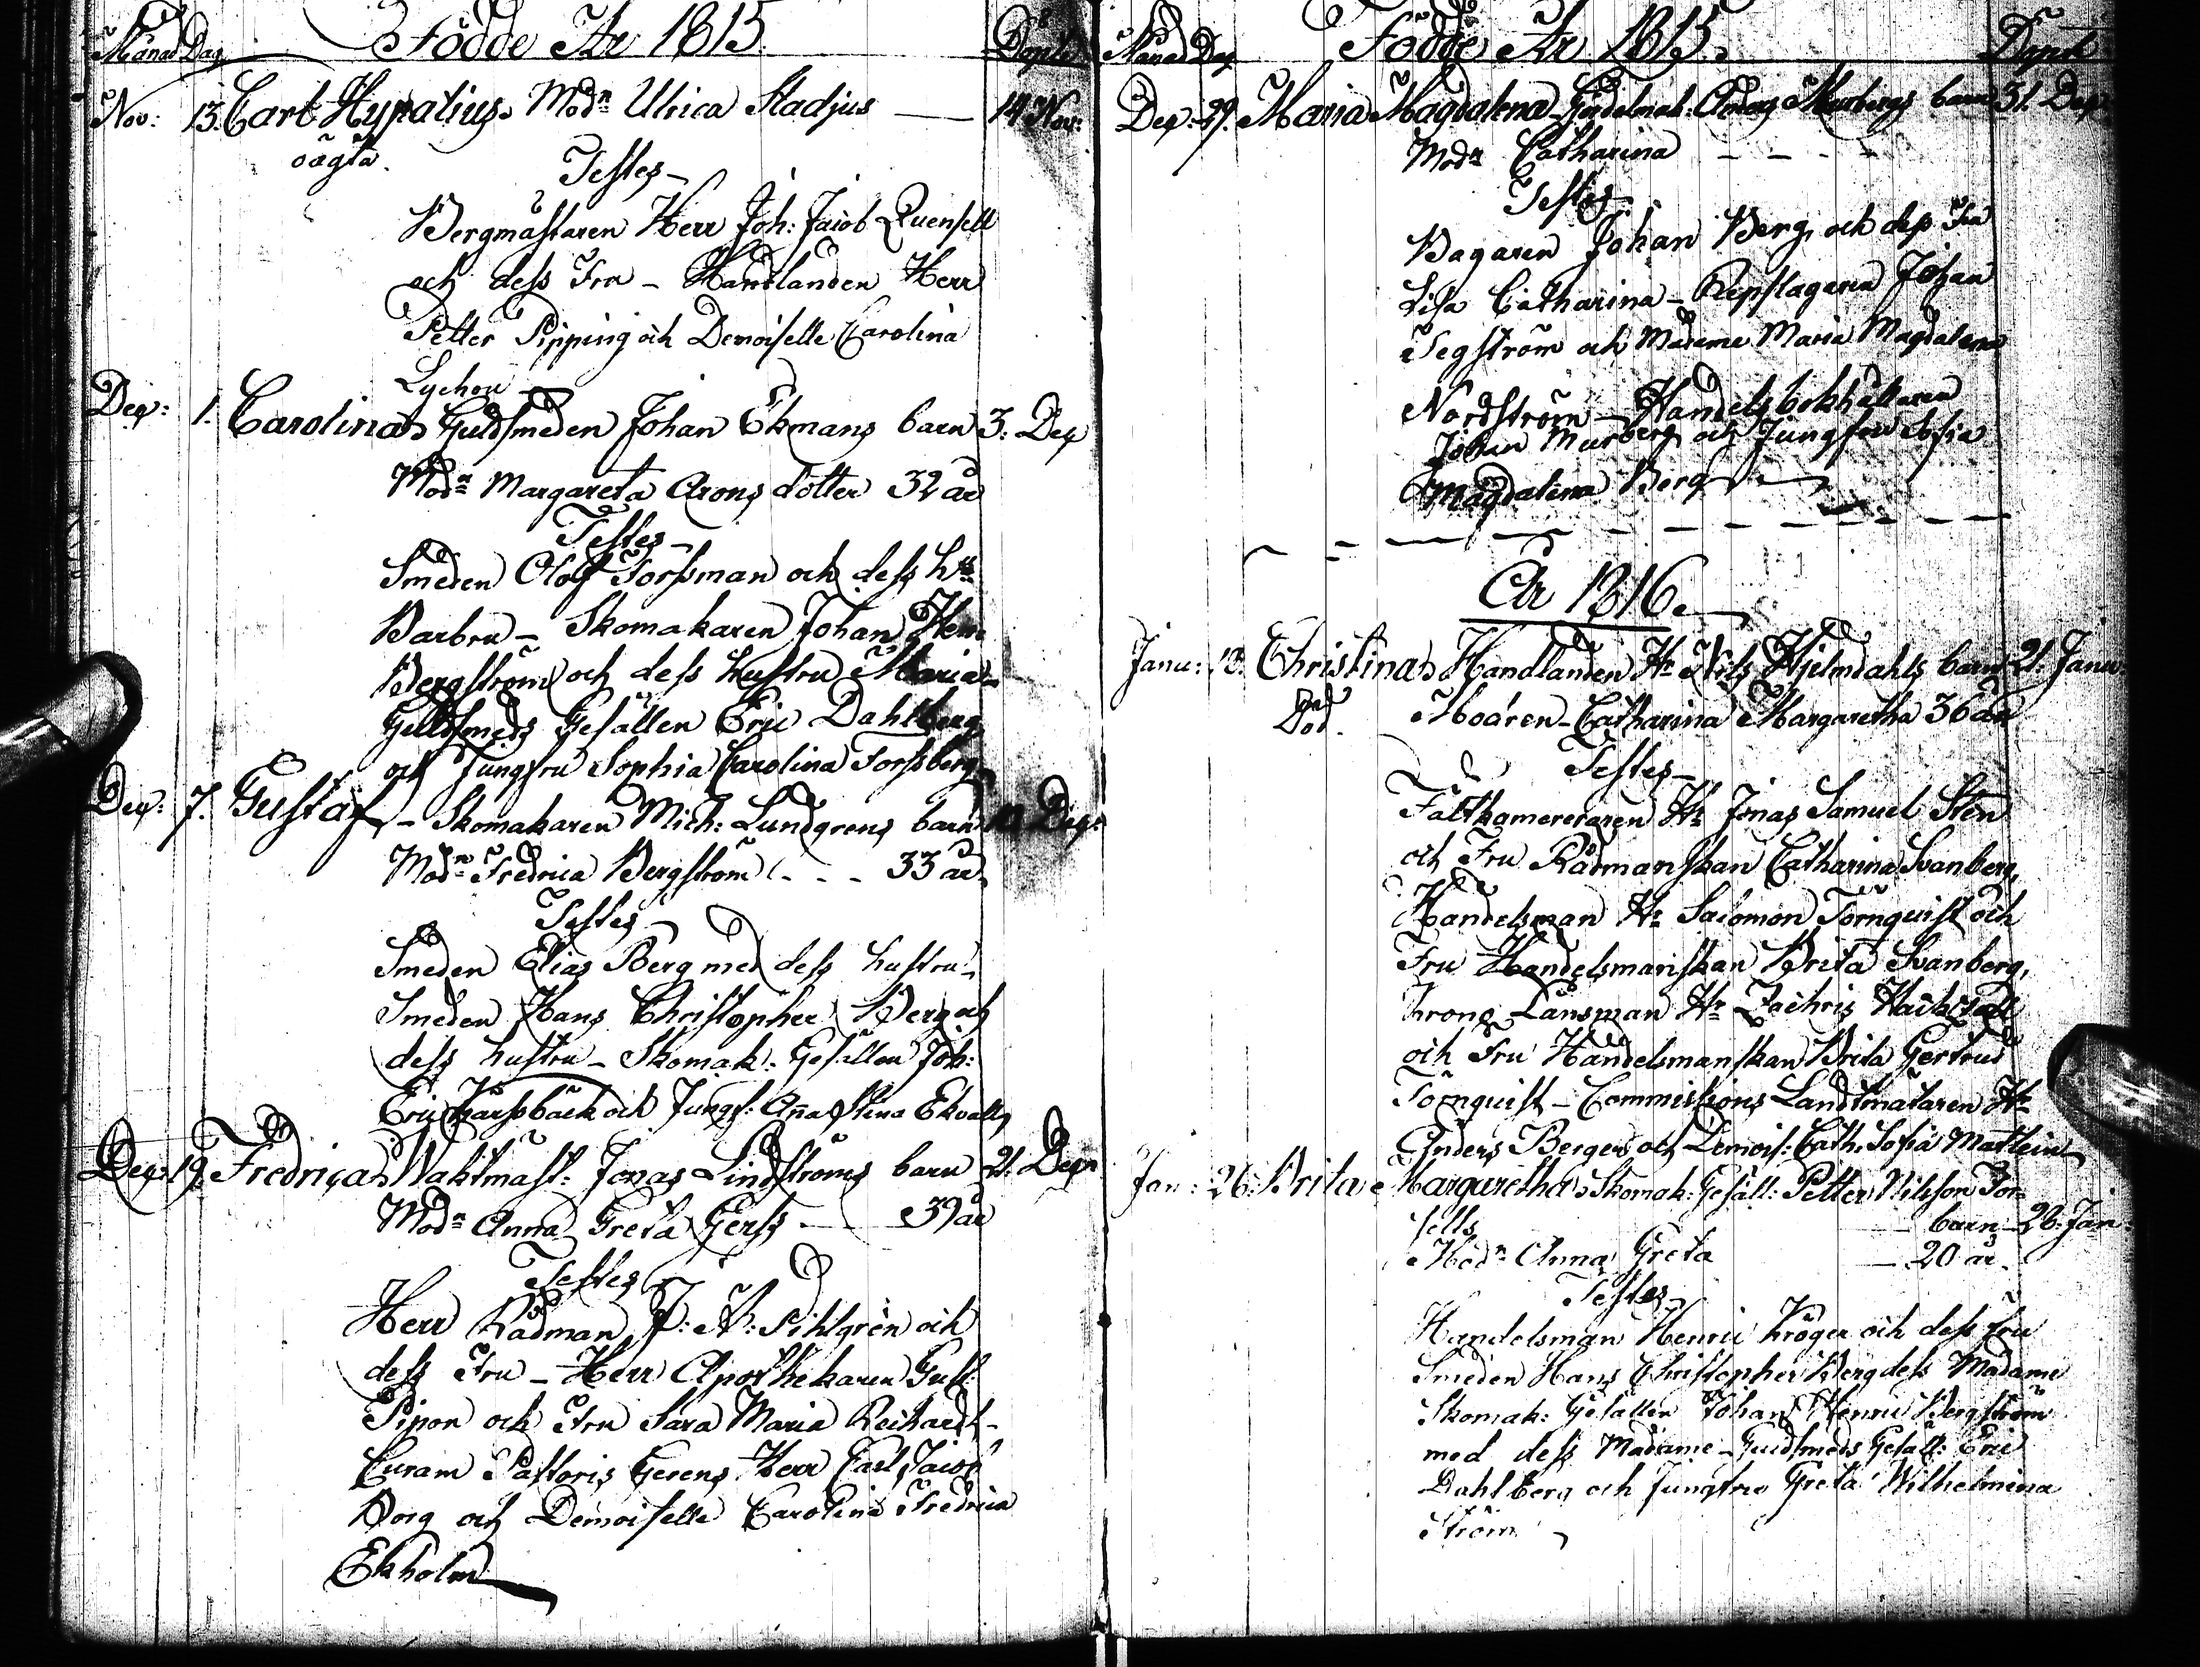 Månad Dag Födde År 1815. Döpte
Nov: 13. Carl Hypatius. Modn Ulrica Stadjus — 14 Nov:
oägta.
Testes —
Bergmästaren Herr Joh: Jacob Quensell
och dess Fru — Handlanden Herr
Petter Pipping och Demoiselle Carolina
Lychou
Dec: 1. Carolina, Guldsmeden Johan Ekmans barn 3. Dec
Modn Margareta Arons dotter 32 år
Testes —
Smeden Olof Forssman och dess hu
Barbru — Skomakaren Johan Hen:
Bergström och dess hustru Maria —
Guldsmeds Gesällen Eric Dahlberg
och Jungfru Sophia Carolina Forssberg
Dec: 7. Gustaf — Skomakaren Mich: Lundgrens barn Dec:
Modn Fredrica Bergström - - - 33 år.
Testes —
Smeden Elias Berg med dess hustru —
Smeden Hans Christopher Berg och
dess hustru — Skomak: Gesällen Joh:
Eric och Jungf: Anna Stina Ekvall
Dec: 19. Fredrica, Waktmäst: Jonas Lindströms barn 21. Dec:
Modn Anna Greta Gerss — 39 år
Testes
Herr Rådman P: A: Pihlgren och
dess Fru — Herr Apothekaren Gust:
Pipon och Fru Sara Maria Reihardt —
Curam Pastoris Gerens Herr Carl Jacob
Borg och Demoiselle Carolina Fredrica
Ekholm
Månad Dag Födde År 1815. Döpte
Dec: 29. Maria Magdalena, Anders Murbergs barn 31. Dec:
Modn Catharina - - - -
Testes
Bagaren Johan Berg, och dess Fru
Lisa Catharina — Repslagaren Johan
Segström och Madame Maria Magdalena
Nordström — Handels bokhållaren
Johan Murberg och Jungfru Sofia
Magdalena Berg
År 1816.
Janu: 13. Christina, Handlanden Hr Nils Hjelmdahls barn 21. Janu
Död. Modren — Catharina Margaretha 36 år
Testes —
Fältkamereraren Hr Jonas Samuel Sten
och Fru Rådmanskan Catharina Svanberg,
Handelsman Hr Salomon Törnquist och
Fru Handelsmanskan Brita Svanberg,
Krono Länsman Hr Zachris
och Fru Handelsmanskan Brita Gertrud
Törnquist — Commissions Landtmätaren Hr
Anders Berger och Demois: Cath: Sofia Mathein
Jan: 26. Brita Margaretha, Skomak: Gesäll: Petter Nilsson For=
sells — barn 28. Jan:
Modn Anna Greta — 20 år.
Testes —
Handelsman Henric Kröger och dess Fru
Smeden Hans Christopher Berg dess Madame
Skomak: Gesällen Johan Henric Bergström
med dess Madame — Guldsmeds Gesäll: Eric
Dahlberg och Jungfru Greta Wilhelmina
Ström